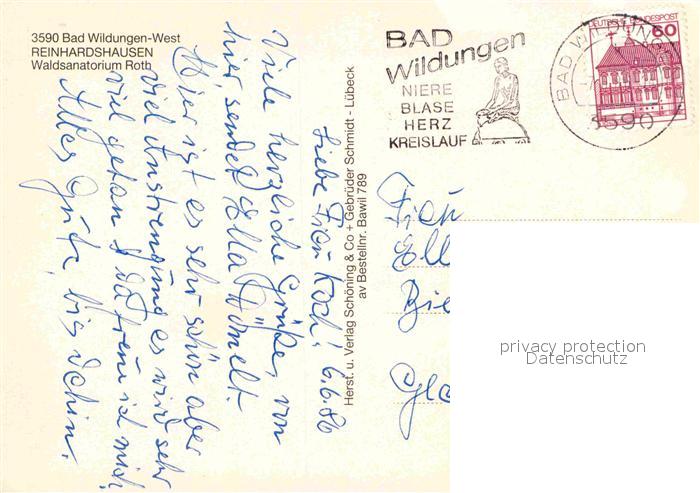 3590 Bad Wildungen-West
REINHARDSHAUSEN
Waldsanatorium Roth
BAD
Wildungen
NIERE
BLASE
HERZ
KREISLAUF
BAD WILDUNG
3590
DEUTSCHE BUNDESPOST
60
Herst. u. Verlag Schöning & Co + Gebrüder Schmidt - Lübeck
av Bestellnr. Bawil 789
6.6.86
Liebe Frau Koch!
Viele herzliche Grüße, von
hier, sendet Ella
Hier ist es sehr schön aber
viel Anstrengung es wird sehr
viel getan, da freu ich mich
Alles Gute bis dahin.
Frau
Ell
Bie
Gla
privacy protection
Datenschutz